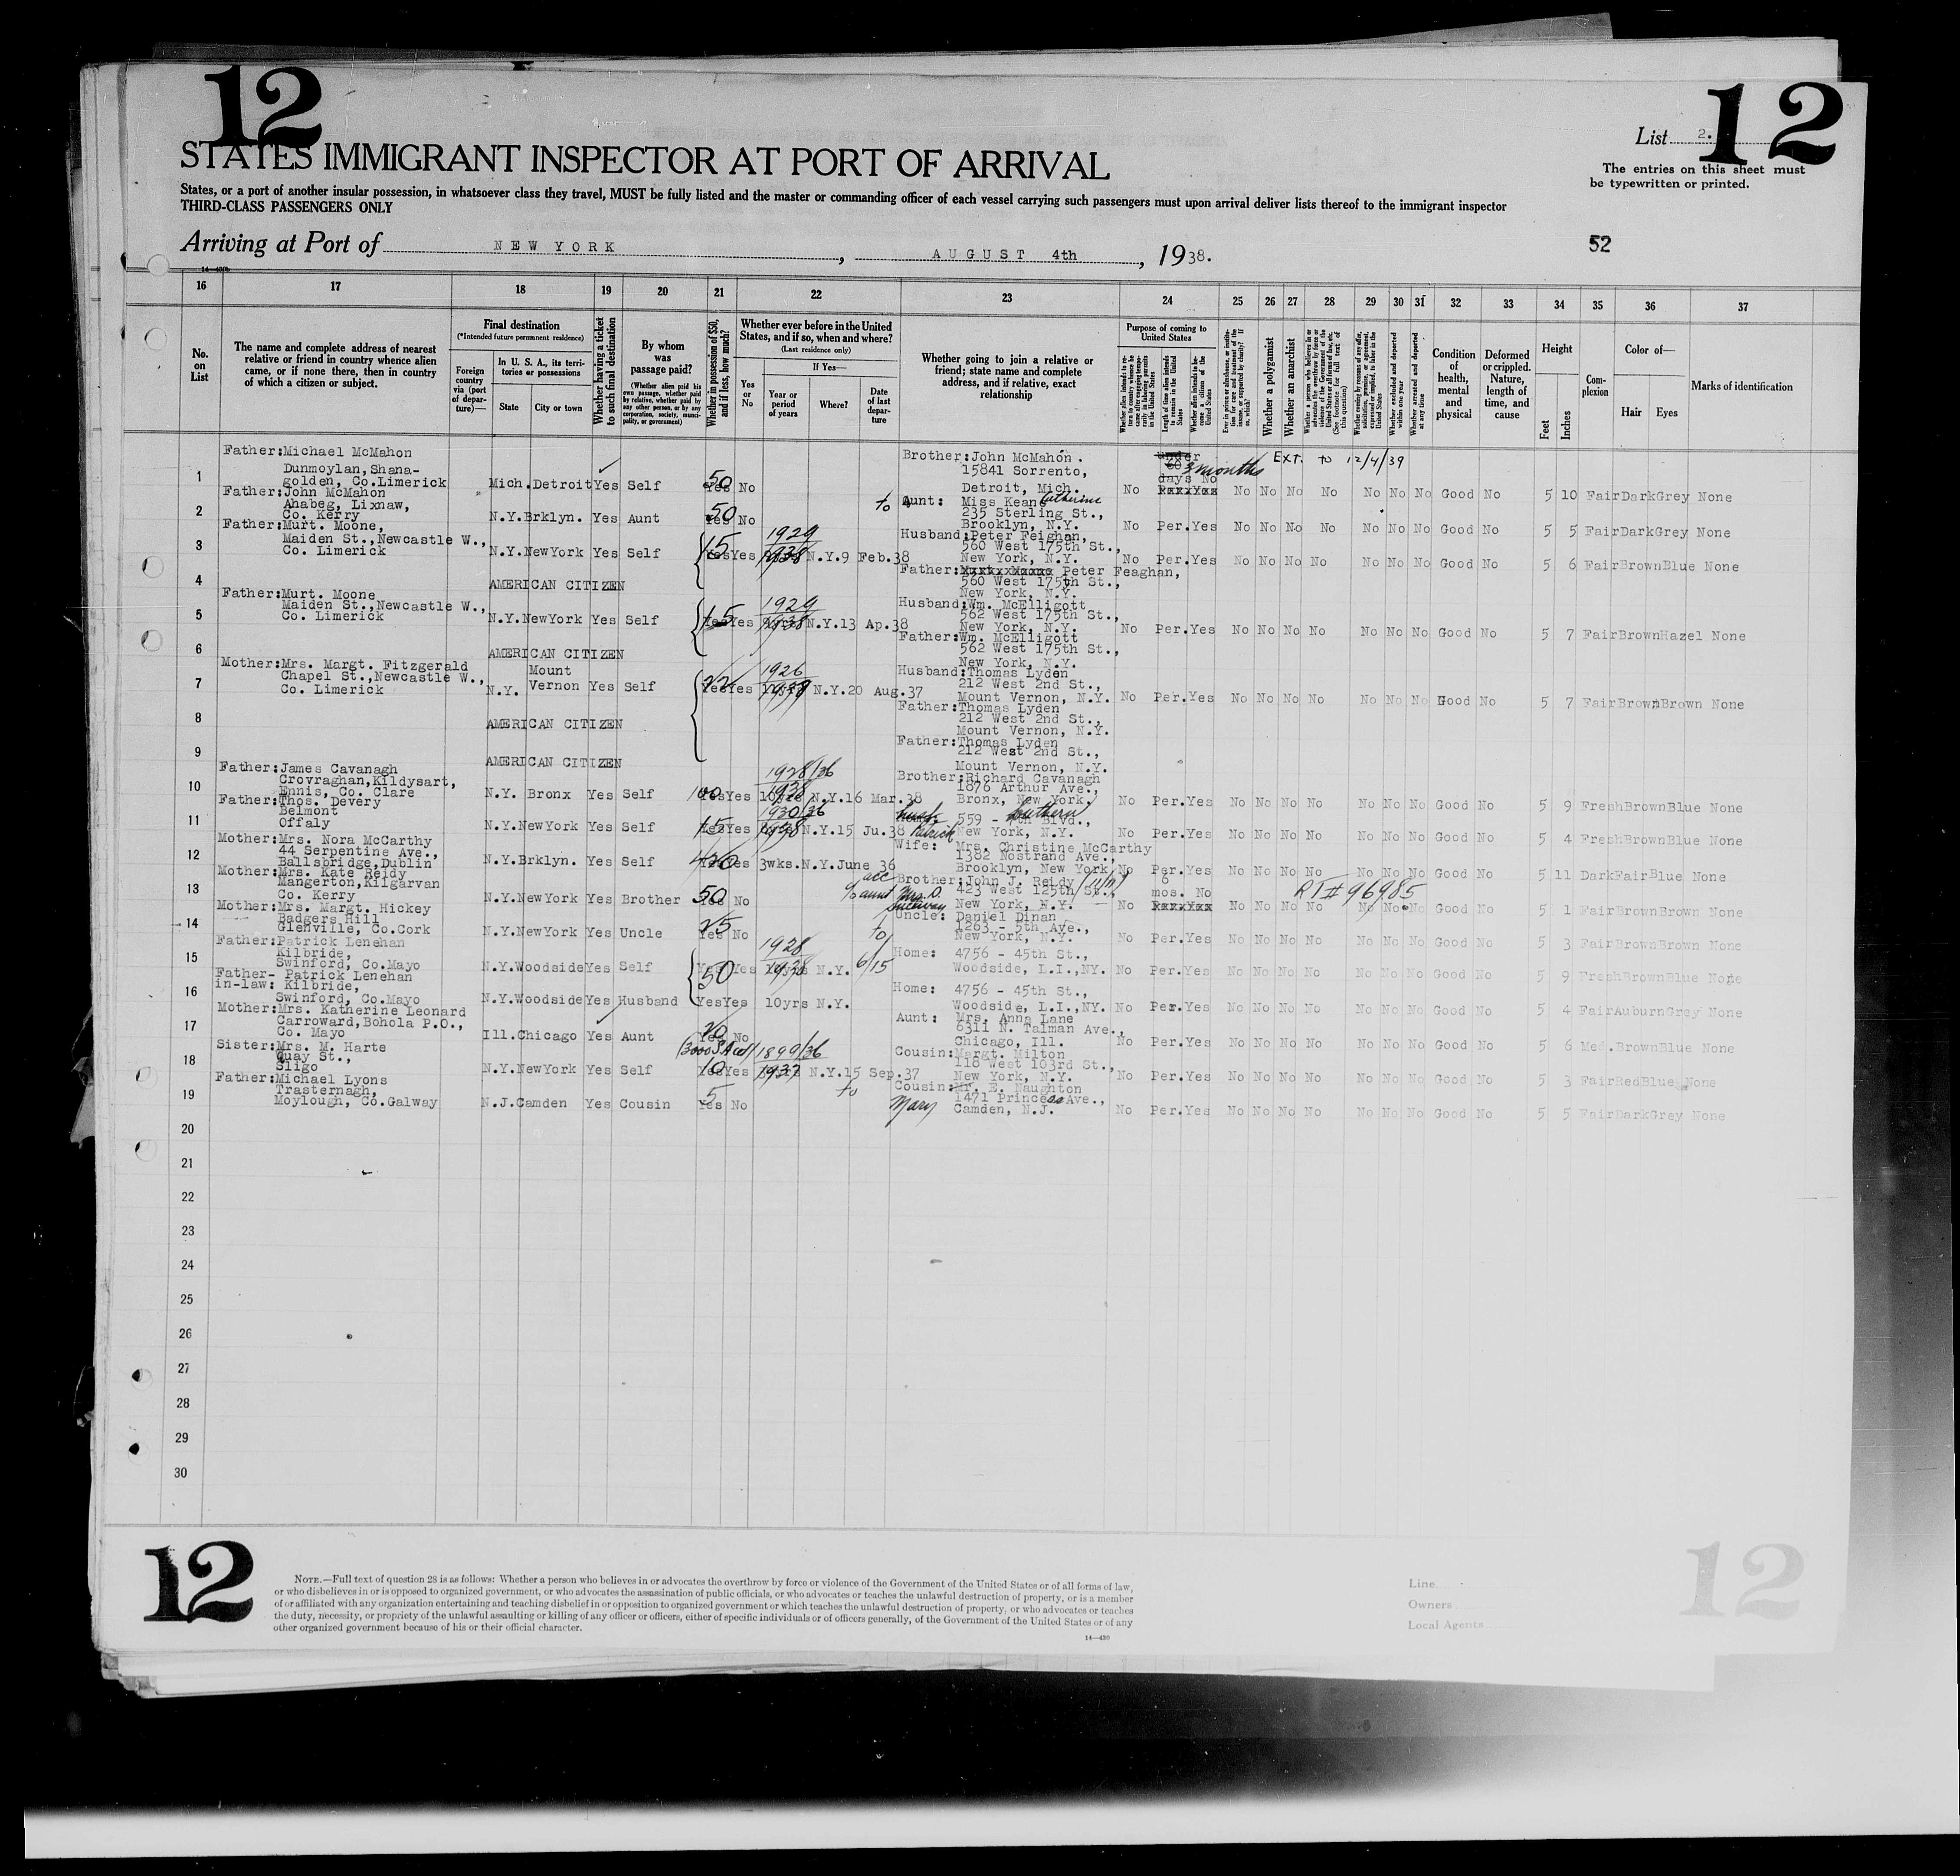 12
12
List 2.
STATES IMMIGRANT INSPECTOR AT PORT OF ARRIVAL
The entries on this sheet must
be typewritten or printed.
States, or a port of another insular possession, in whatsoever class they travel, MUST be fully listed and the master or commanding officer of each vessel carrying such passengers must upon arrival deliver lists thereof to the immigrant inspector
THIRD-CLASS PASSENGERS ONLY
Arriving at Port of NEW YORK, AUGUST 4th, 1938.
52
16 17 18 19 20 21 22 23 24 25 26 27 28 29 30 31 32 33 34 35 36 37
No. on List
The name and complete address of nearest relative or friend in country whence alien came, or if none there, then in country of which a citizen or subject.
Final destination
(*Intended future permanent residence)
Foreign country via (port of departure)—
In U. S. A., its territories or possessions
State
City or town
Whether having a ticket to such final destination
By whom was passage paid?
(Whether alien paid his own passage, whether paid by relative, whether paid by any other person, or by any corporation, society, municipality, or government)
Whether in possession of $50, and if less, how much?
Whether ever before in the United States, and if so, when and where?
(Last residence only)
Yes or No
If Yes—
Year or period of years
Where?
Date of last departure
Whether going to join a relative or friend; state name and complete address, and if relative, exact relationship
Purpose of coming to United States
Whether a polygamist
Whether an anarchist
Condition of health, mental and physical
Deformed or crippled. Nature, length of time, and cause
Height
Feet
Inches
Complexion
Color of—
Hair
Eyes
Marks of identification
1 Father:Michael McMahon
Dunmoylan,Shana-
golden, Co.Limerick Mich. Detroit Yes Self 50 No
Brother:John McMahon.
15841 Sorrento,
Detroit, Mich. No 3 months days No EXT. to 12/4/39 No No No No No No No Good No 5 10 Fair Dark Grey None
2 Father:John McMahon
Ahabeg, Lixnaw,
Co. Kerry N.Y. Brklyn. Yes Aunt 50 No to
Aunt: Miss Keane Catherine
235 Sterling St.,
Brooklyn, N.Y. No Per. Yes No No No No No No No Good No 5 5 Fair Dark Grey None
3 Father:Murt. Moone,
Maiden St.,Newcastle W.,
Co. Limerick N.Y. NewYork Yes Self 15 Yes 1929 1938 N.Y. 9 Feb.38
Husband:Peter Feighan,
560 West 175th St.,
New York, N.Y. No Per. Yes No No No No No No No Good No 5 6 Fair Brown Blue None
4 AMERICAN CITIZEN
Father: Peter Feaghan,
560 West 175th St.,
New York, N.Y.
5 Father:Murt. Moone
Maiden St.,Newcastle W.,
Co. Limerick N.Y. NewYork Yes Self 15 Yes 1929 1938 N.Y. 13 Ap.38
Husband:Wm. McElligott
562 West 175th St.,
New York, N.Y. No Per. Yes No No No No No No No Good No 5 7 Fair Brown Hazel None
6 AMERICAN CITIZEN
Father:Wm. McElligott
562 West 175th St.,
New York, N.Y.
7 Mother:Mrs. Margt. Fitzgerald
Chapel St.,Newcastle W.,
Co. Limerick N.Y. Mount Vernon Yes Self Yes 1926 N.Y. 20 Aug.37
Husband:Thomas Lyden
212 West 2nd St.,
Mount Vernon, N.Y. No Per. Yes No No No No No No No Good No 5 7 Fair Brown Brown None
8 AMERICAN CITIZEN
Father:Thomas Lyden
212 West 2nd St.,
Mount Vernon, N.Y.
9 AMERICAN CITIZEN
Father:Thomas Lyden
212 West 2nd St.,
Mount Vernon, N.Y.
10 Father:James Cavanagh
Crovraghan,Kildysart,
Ennis, Co. Clare N.Y. Bronx Yes Self 100 Yes 1928/36 1938 N.Y. 16 Mar.38
Brother:Richard Cavanagh
1876 Arthur Ave.,
Bronx, New York. No Per. Yes No No No No No No No Good No 5 9 Fresh Brown Blue None
11 Father:Thos. Devery
Belmont
Offaly N.Y. NewYork Yes Self 15 Yes 1930/36 1938 N.Y. 15 Ju.38
Patrick 559 - Southern Blvd.,
New York, N.Y. No Per. Yes No No No No No No No Good No 5 4 Fresh Brown Blue None
12 Mother:Mrs. Nora McCarthy
44 Serpentine Ave.,
Ballsbridge,Dublin N.Y. Brklyn. Yes Self Yes 3wks. N.Y. June 36
Wife: Mrs. Christine McCarthy
1382 Nostrand Ave.,
Brooklyn, New York No Per. Yes No No No No No No No Good No 5 11 Dark Fair Blue None
13 Mother:Mrs. Kate Reidy
Mangerton,Kilgarvan
Co. Kerry N.Y. NewYork Yes Brother 50 No acc aunt Mrs. D. Sullivan
Brother:John J. Reidy
423 West 125th St.,
New York, N.Y. No 6 mos. No RT# 96985 No No No No No No No Good No 5 1 Fair Brown Brown None
14 Mother:Mrs. Margt. Hickey
Badgers Hill
Glenville, Co.Cork N.Y. NewYork Yes Uncle 25 No to
Uncle: Daniel Dinan
1263 - 5th Ave.,
New York, N.Y. No Per. Yes No No No No No No No Good No 5 3 Fair Brown Brown None
15 Father:Patrick Lenehan
Kilbride,
Swinford, Co.Mayo N.Y. Woodside Yes Self 50 Yes 1928 1938 N.Y. 6/15
Home: 4756 - 45th St.,
Woodside, L.I.,NY. No Per. Yes No No No No No No No Good No 5 9 Fresh Brown Blue None
16 Father- Patrick Lenehan
in-law: Kilbride,
Swinford, Co.Mayo N.Y. Woodside Yes Husband Yes Yes 10yrs N.Y.
Home: 4756 - 45th St.,
Woodside, L.I.,NY. No Per. Yes No No No No No No No Good No 5 4 Fair Auburn Grey None
17 Mother:Mrs. Katherine Leonard
Carroward,Bohola P.O.,
Co. Mayo Ill. Chicago Yes Aunt 20 No
Aunt: Mrs. Anna Lane
6311 N. Talman Ave.,
Chicago, Ill. No Per. Yes No No No No No No No Good No 5 6 Med. Brown Blue None
18 Sister:Mrs. M. Harte
Quay St.,
Sligo N.Y. NewYork Yes Self 10 Yes 1899/36 1937 N.Y. 15 Sep.37
Cousin:Margt. Milton
118 West 103rd St.,
New York, N.Y. No Per. Yes No No No No No No No Good No 5 3 Fair Red Blue None
19 Father:Michael Lyons
Trasternagh,
Moylough, Co.Galway N.J. Camden Yes Cousin 5 No to
Cousin: E. Naughton
Mary 1471 Princess Ave.,
Camden, N.J. No Per. Yes No No No No No No No Good No 5 5 Fair Dark Grey None
20
21
22
23
24
25
26
27
28
29
30
12
12
NOTE.—Full text of question 28 is as follows: Whether a person who believes in or advocates the overthrow by force or violence of the Government of the United States or of all forms of law,
or who disbelieves in or is opposed to organized government, or who advocates the assassination of public officials, or who advocates or teaches the unlawful destruction of property, or is a member
of or affiliated with any organization entertaining and teaching disbelief in or opposition to organized government or which teaches the unlawful destruction of property, or who advocates or teaches
the duty, necessity, or propriety of the unlawful assaulting or killing of any officer or officers, either of specific individuals or of officers generally, of the Government of the United States or of any
other organized government because of his or their official character.
14—430
Line
Owners
Local Agents